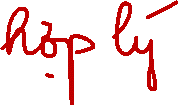 hợp lý